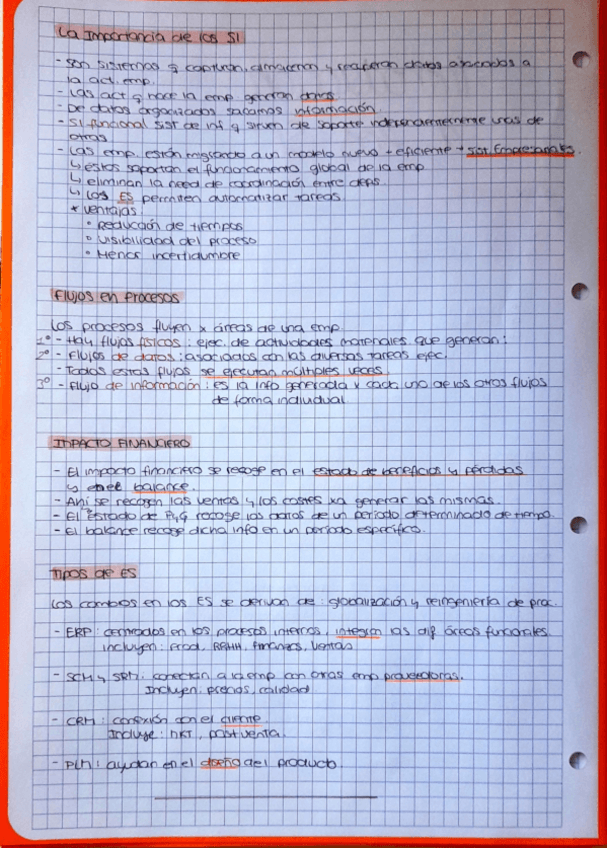 La Importancia de los SI
- Son sistemas q capturan, almacenan y recuperan datos asociados a
la act. emp.
- Las act q hace la emp generan datos.
- De datos organizados sacamos información.
- SI funcional sist de inf q sirven de soporte independientemente unas de
otras
- Las emp. están migrando a un modelo nuevo + eficiente → Sist. Empresariales.
↳ estos soportan el funcionamiento global de la emp
↳ eliminan la nece de coordinación entre deps.
↳ Los ES permiten automatizar tareas
* ventajas
° Reducción de tiempos
° Visibilidad del proceso
° Menor incertidumbre
Flujos en procesos
Los procesos fluyen x áreas de una emp.
1º - Hay flujos físicos : ejec. de actividades materiales que generan :
2º - Flujos de datos : asociados con las diversas tareas ejec.
- Todos estos flujos se ejecutan múltiples veces
3º - Flujo de información : es la info generada x cada uno de los otros flujos
de forma individual
IMPACTO FINANCIERO
- El impacto financiero se recoge en el estado de beneficios y pérdidas
y en el balance.
- Ahí se recogen las ventas y los costes xa generar las mismas.
- El estado de PyG recoge los datos de un período determinado de tiempo.
- El balance recoge dicha info en un período específico.
Tipos de ES
Los cambios en los ES se derivan de : globalización y reingeniería de proc.
- ERP : centrados en los procesos internos, integran las dif áreas funcionales.
incluyen : Prod, RRHH, finanzas, ventas
- SCM y SRM : conectan a la emp con otras emp proveedoras.
Incluyen : precios, calidad
- CRM : conexión con el cliente.
Incluye : MKT, postventa.
- PLM : ayudan en el diseño del producto.